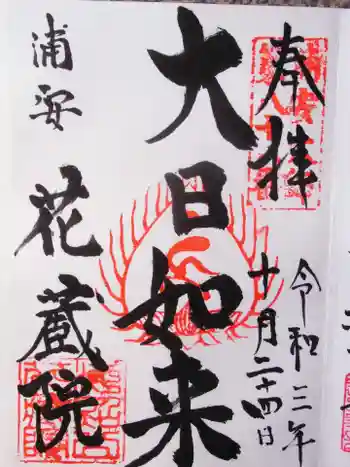 奉拝
令和三年
十月二十四日
大日如来
浦安
花蔵院